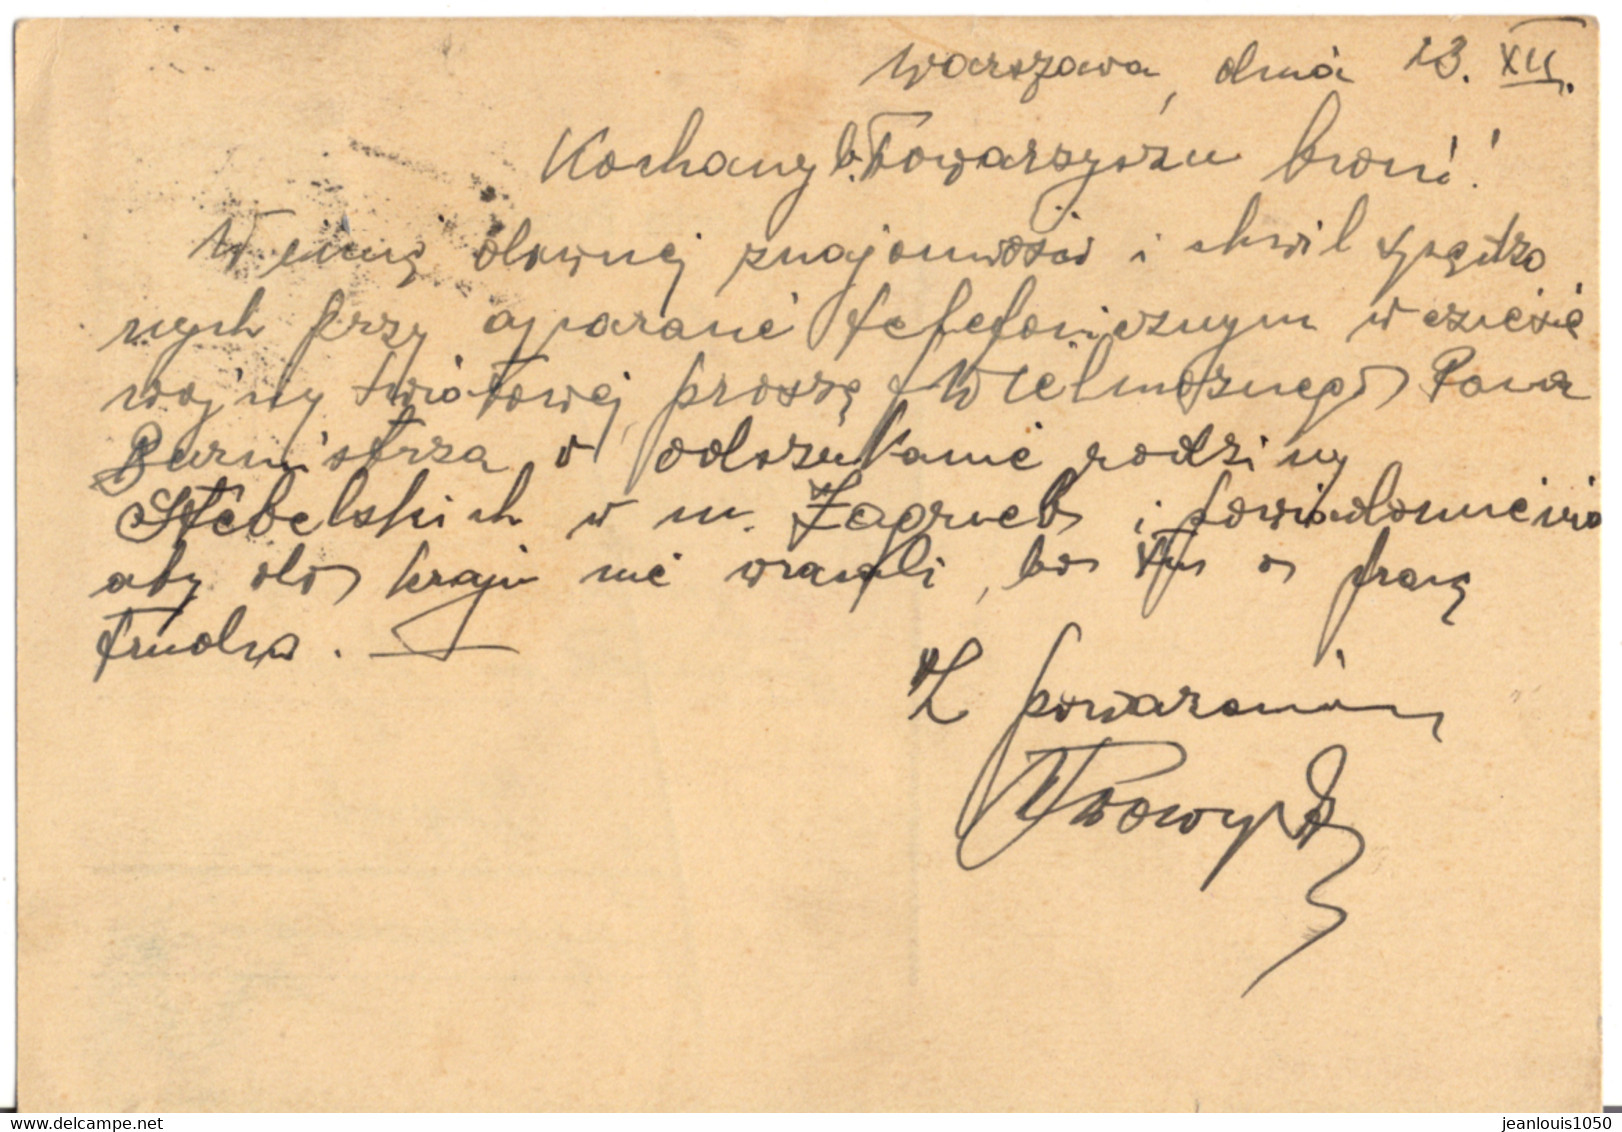 Warszawa, dnia 13. XII.
Kochany b. Towarzyszu broni!
W imię dawnej znajomości i chwil spędzo
nych przy aparacie telefonicznym w czasie
wojny światowej, proszę Wielmożnego Pana
Burmistrza o odszukanie rodziny
Stebelskich w m. Zagrzeb i powiadomienie
aby do kraju nie wracali, bo tu o pracę
trudno.
Z poważaniem
www.delcampe.net
jeanlouis1050